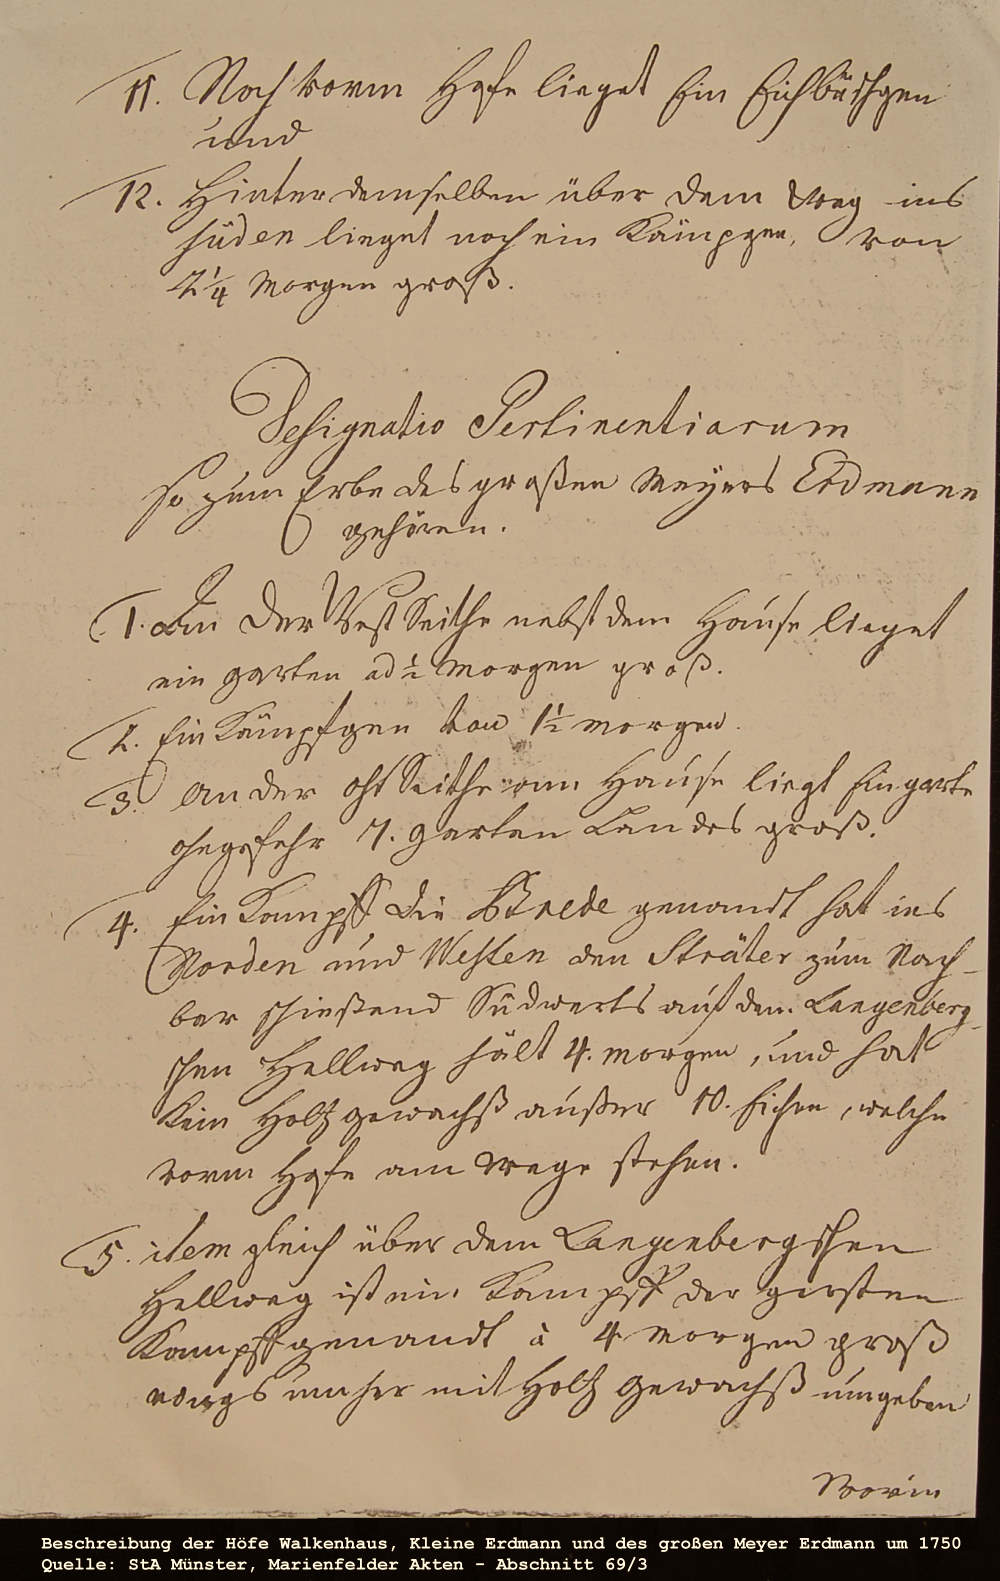 11. Noch vorm Hofe lieget Ein Eichbüschgen
und
12. Hinter demselben über dem Weg ins
süden lieget noch ein Kämpgen, von
2 1/4 Morgen groß.
Designatio Pertinentiarum
so zum Erbe des großen Meyers Erdmann
gehören.
1. An der West Seithe nebst dem Hause lieget
ein garten ad 1/2 Morgen groß.
2. Ein Kämpfgen von 1 1/2 morgen.
3. an der Ost Seithe vom Hause liegt Ein garte
ohngefehr 7. garten Landes groß.
4. Ein Kampff die Breede genandt hat ins
Norden und Westen den Sträter zum Nach-
bar schießend Südwerts auf den Langenberg-
schen Hellweg hält 4. morgen, und hat
Kein Holtz gewachß außer 10. Eichen, welche
vorm Hofe am wege stehen.
5. item gleich über dem Langenbergschen
Hellweg ist ein Kampff der gersten
Kampff genandt à 4 Morgen groß
rings umher mit Holtz gewachß umgeben
Worin
Beschreibung der Höfe Walkenhaus, Kleine Erdmann und des großen Meyer Erdmann um 1750
Quelle: StA Münster, Marienfelder Akten - Abschnitt 69/3